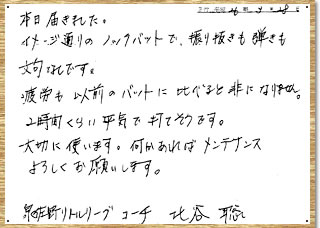 本日届きました。
イメージ通りのノックバットで、振り抜きも弾きも
文句なしです。
疲労も以前のバットに比べると非になりません。
2時間くらい平気で打てそうです。
大切に使います。何かあればメンテナンス
よろしくお願いします。
泉佐野リトルリーグ コーチ 比谷 聡